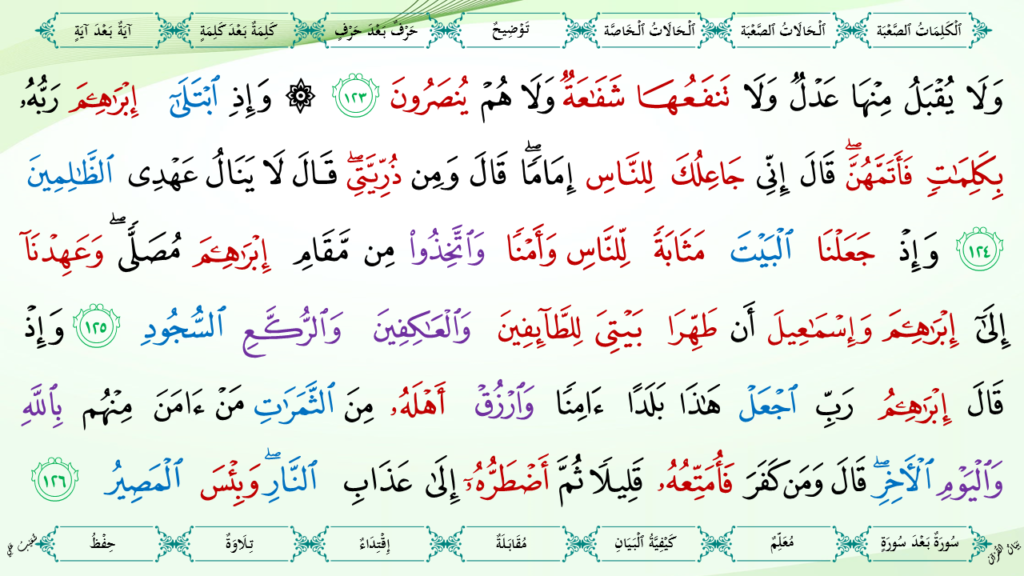 ٱلْكَلِمَاتُ ٱلصَّعْبَة ٱلْحَالَاتُ ٱلصَّعْبَة ٱلْحَالَاتُ ٱلْخَاصَّة تَوْضِيحٌ حَرْفٌ بَعْدَ حَرْفٍ كَلِمَةٌ بَعْدَ كَلِمَةٍ آيَةٌ بَعْدَ آيَةٍ
وَلَا يُقْبَلُ مِنْهَا عَدْلٌ وَلَا تَنفَعُهَا شَفَٰعَةٌ وَلَا هُمْ يُنصَرُونَ ١٢٣ ۞ وَإِذِ ٱبْتَلَىٰٓ إِبْرَٰهِـۧمَ رَبُّهُۥ
بِكَلِمَٰتٍ فَأَتَمَّهُنَّ ۖ قَالَ إِنِّى جَاعِلُكَ لِلنَّاسِ إِمَامًا ۖ قَالَ وَمِن ذُرِّيَّتِى ۖ قَالَ لَا يَنَالُ عَهْدِى ٱلظَّٰلِمِينَ
١٢٤ وَإِذْ جَعَلْنَا ٱلْبَيْتَ مَثَابَةً لِّلنَّاسِ وَأَمْنًا وَٱتَّخِذُوا۟ مِن مَّقَامِ إِبْرَٰهِـۧمَ مُصَلًّى ۖ وَعَهِدْنَآ
إِلَىٰٓ إِبْرَٰهِـۧمَ وَإِسْمَٰعِيلَ أَن طَهِّرَا بَيْتِىَ لِلطَّآئِفِينَ وَٱلْعَٰكِفِينَ وَٱلرُّكَّعِ ٱلسُّجُودِ ١٢٥ وَإِذْ
قَالَ إِبْرَٰهِـۧمُ رَبِّ ٱجْعَلْ هَٰذَا بَلَدًا ءَامِنًا وَٱرْزُقْ أَهْلَهُۥ مِنَ ٱلثَّمَرَٰتِ مَنْ ءَامَنَ مِنْهُم بِٱللَّهِ
وَٱلْيَوْمِ ٱلْءَاخِرِ ۖ قَالَ وَمَن كَفَرَ فَأُمَتِّعُهُۥ قَلِيلًا ثُمَّ أَضْطَرُّهُۥٓ إِلَىٰ عَذَابِ ٱلنَّارِ ۖ وَبِئْسَ ٱلْمَصِيرُ ١٢٦
سُورَةٌ بَعْدَ سُورَةٍ مُعَلِّمٌ كَيْفِيَّةُ ٱلْبَيَانِ مُقَابَلَةٌ إِقْتِدَاءٌ تِلَاوَةٌ حِفْظٌ